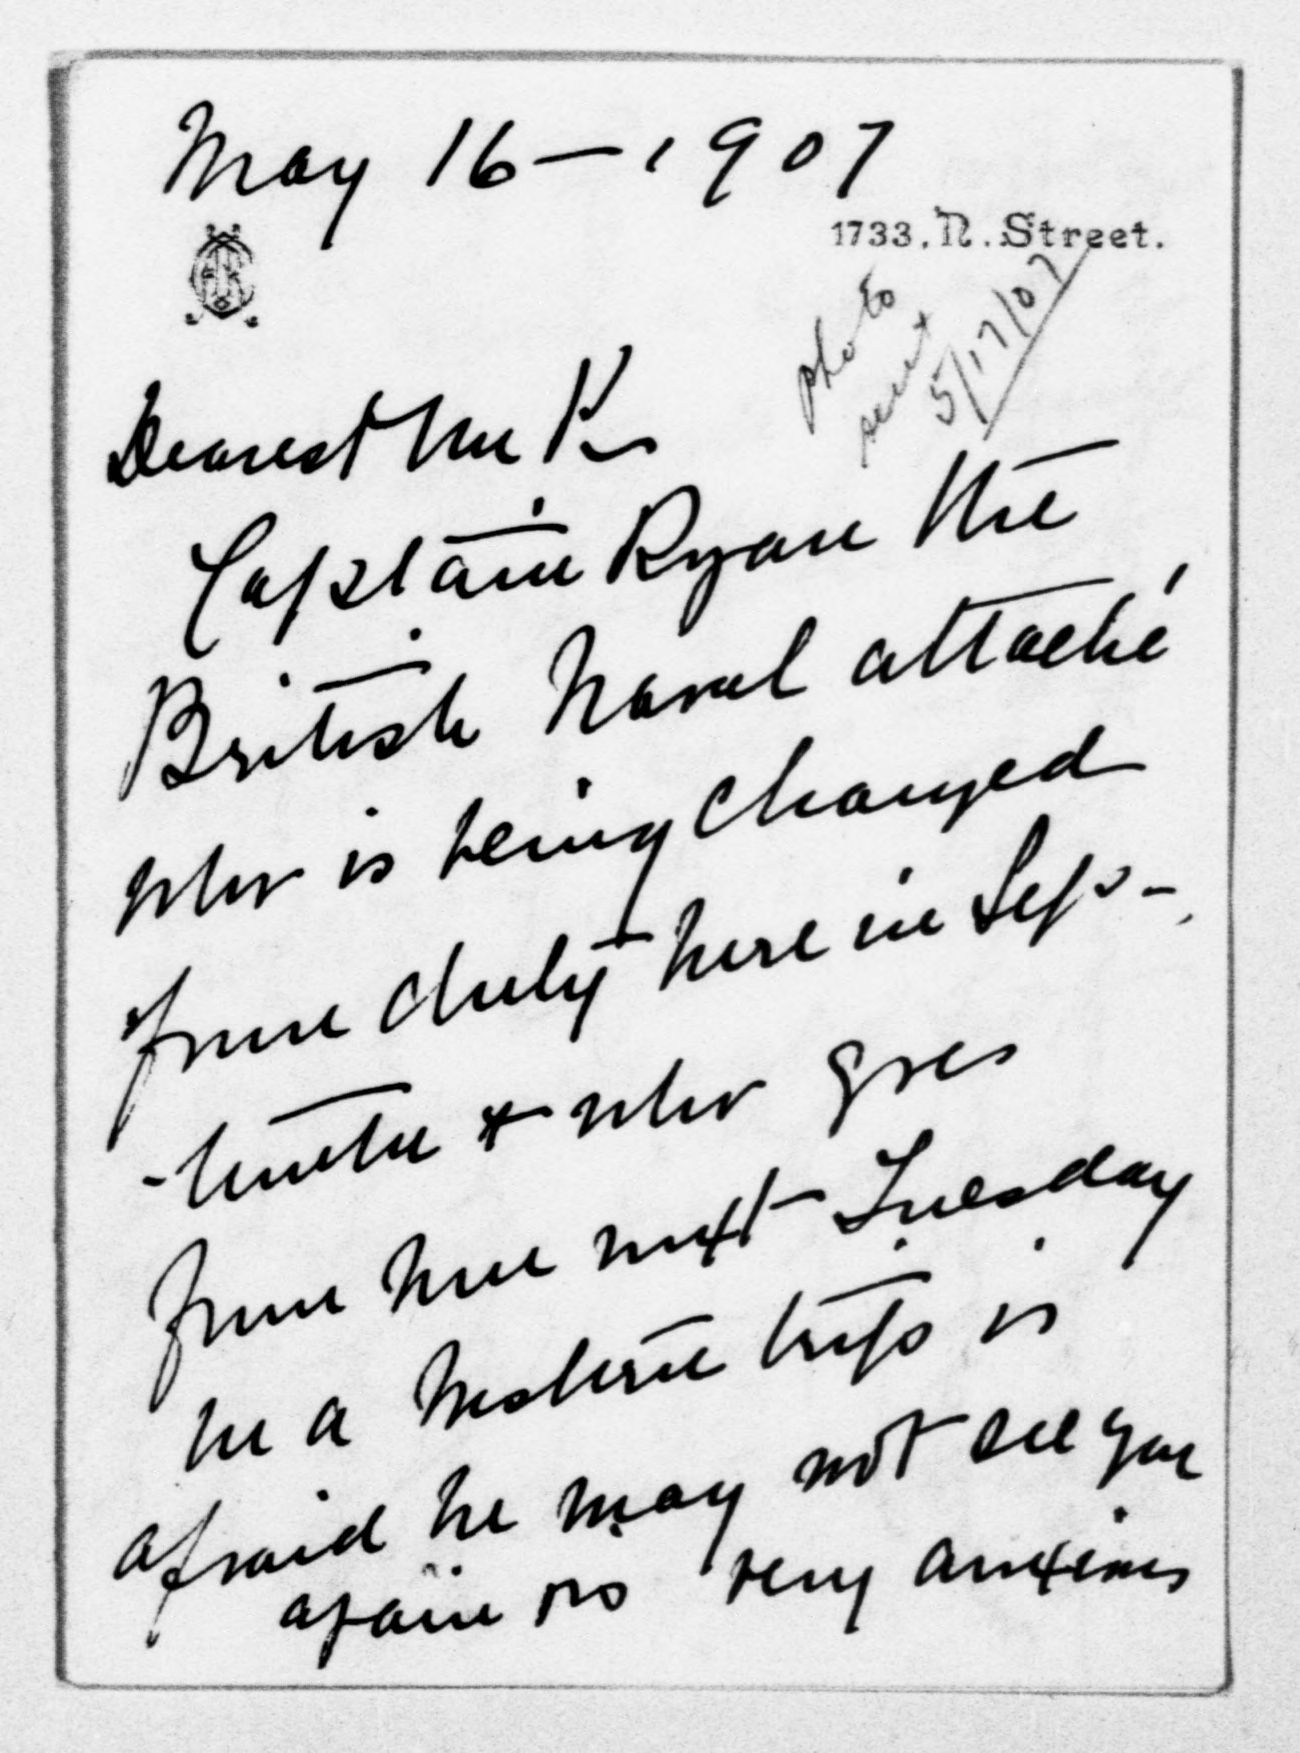 May 16 — 1907
1733. N. Street.
photo
sent
5/17/07
Dearest Mr K
Captain Ryan the
British Naval attaché
who is being changed
from duty here in Sep -
- tember & who goes
from here next Tuesday
on a Western trip is
afraid he may not see you
again so very anxious